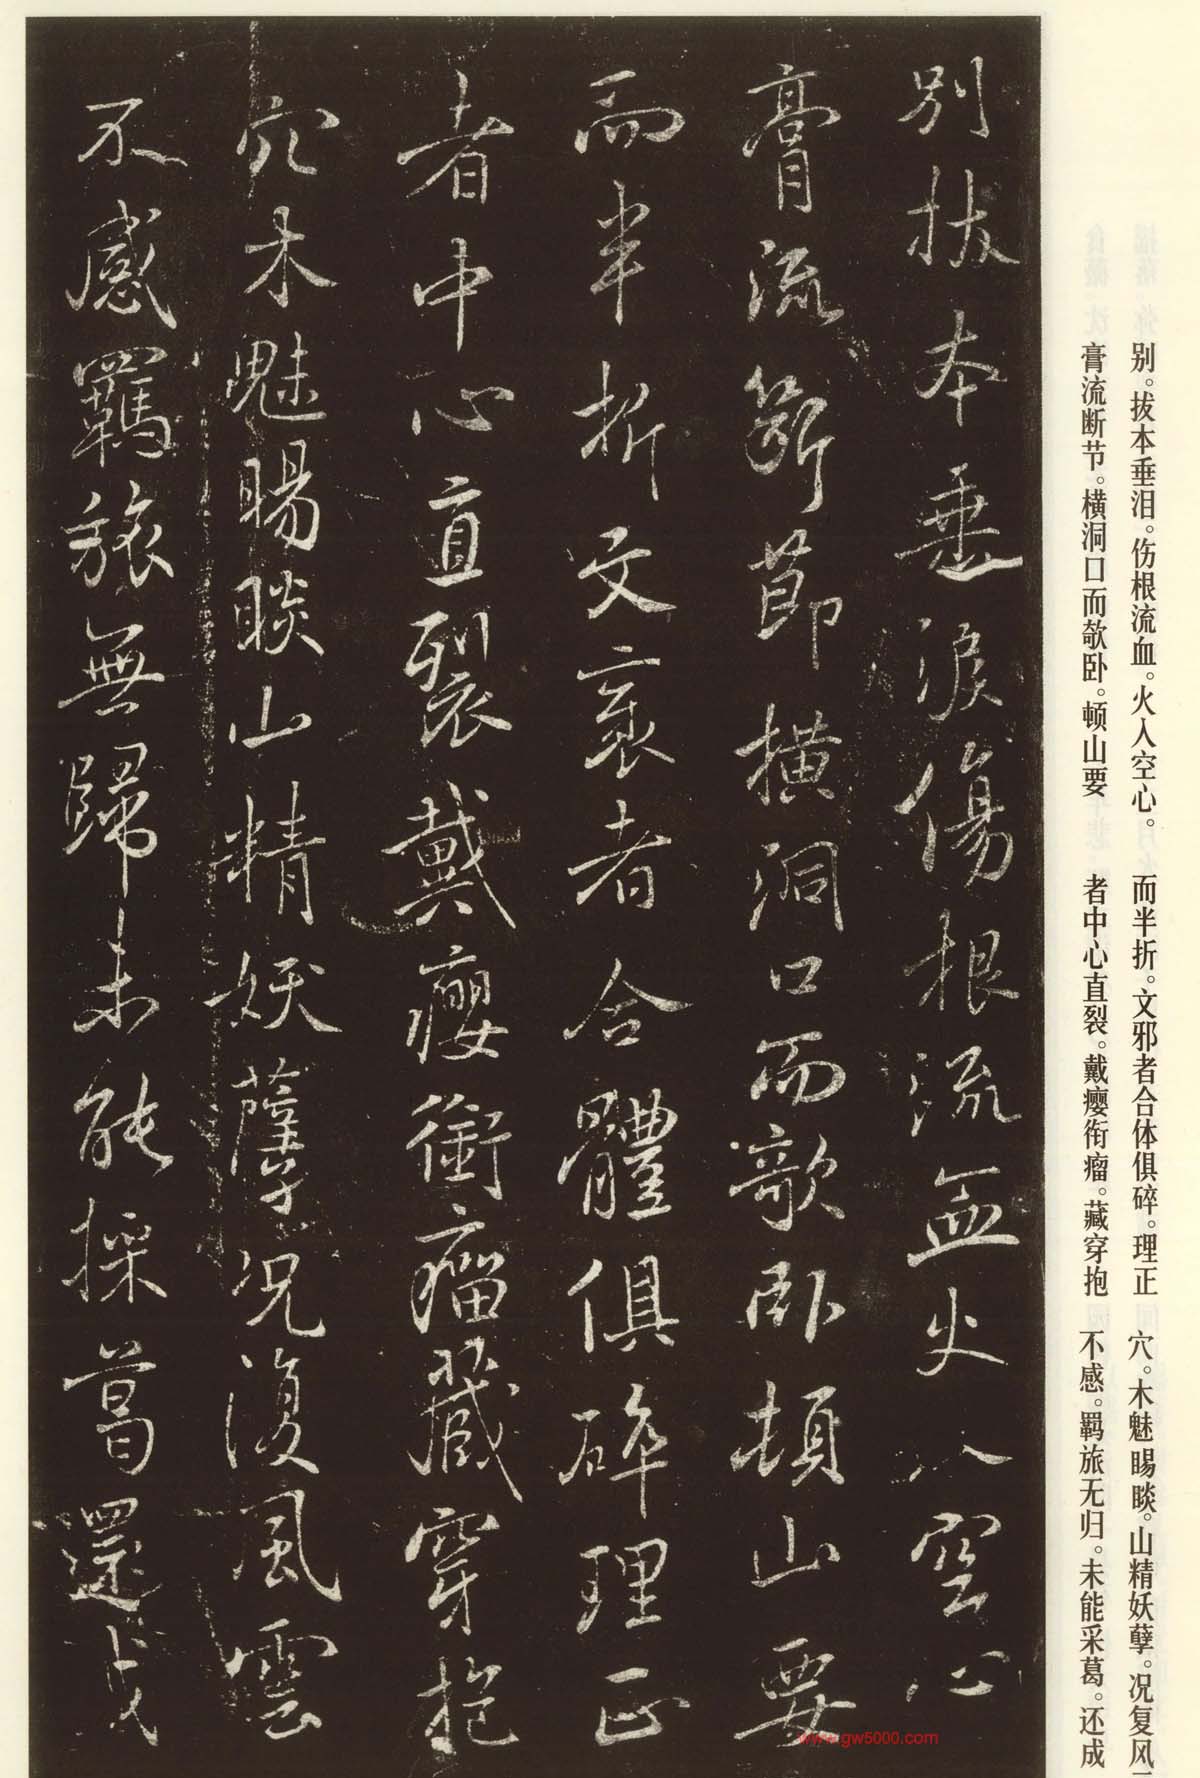 别拔本垂淚傷根流血火入空心
膏流斷節橫洞口而欹臥頓山要
而半折文衺者合體俱碎理正
者中心直裂戴癭銜瘤藏穿抱
穴木魅睗睒山精妖孽況復風雲
不感羈旅無歸未能採葛還成
别。拔本垂泪。伤根流血。火入空心。
膏流断节。横洞口而欹卧。顿山要
而半折。文邪者合体俱碎。理正
者中心直裂。戴瘿衔瘤。藏穿抱
穴。木魅睗睒。山精妖孽。况复风
不感。羁旅无归。未能采葛。还成
www.gw5000.com